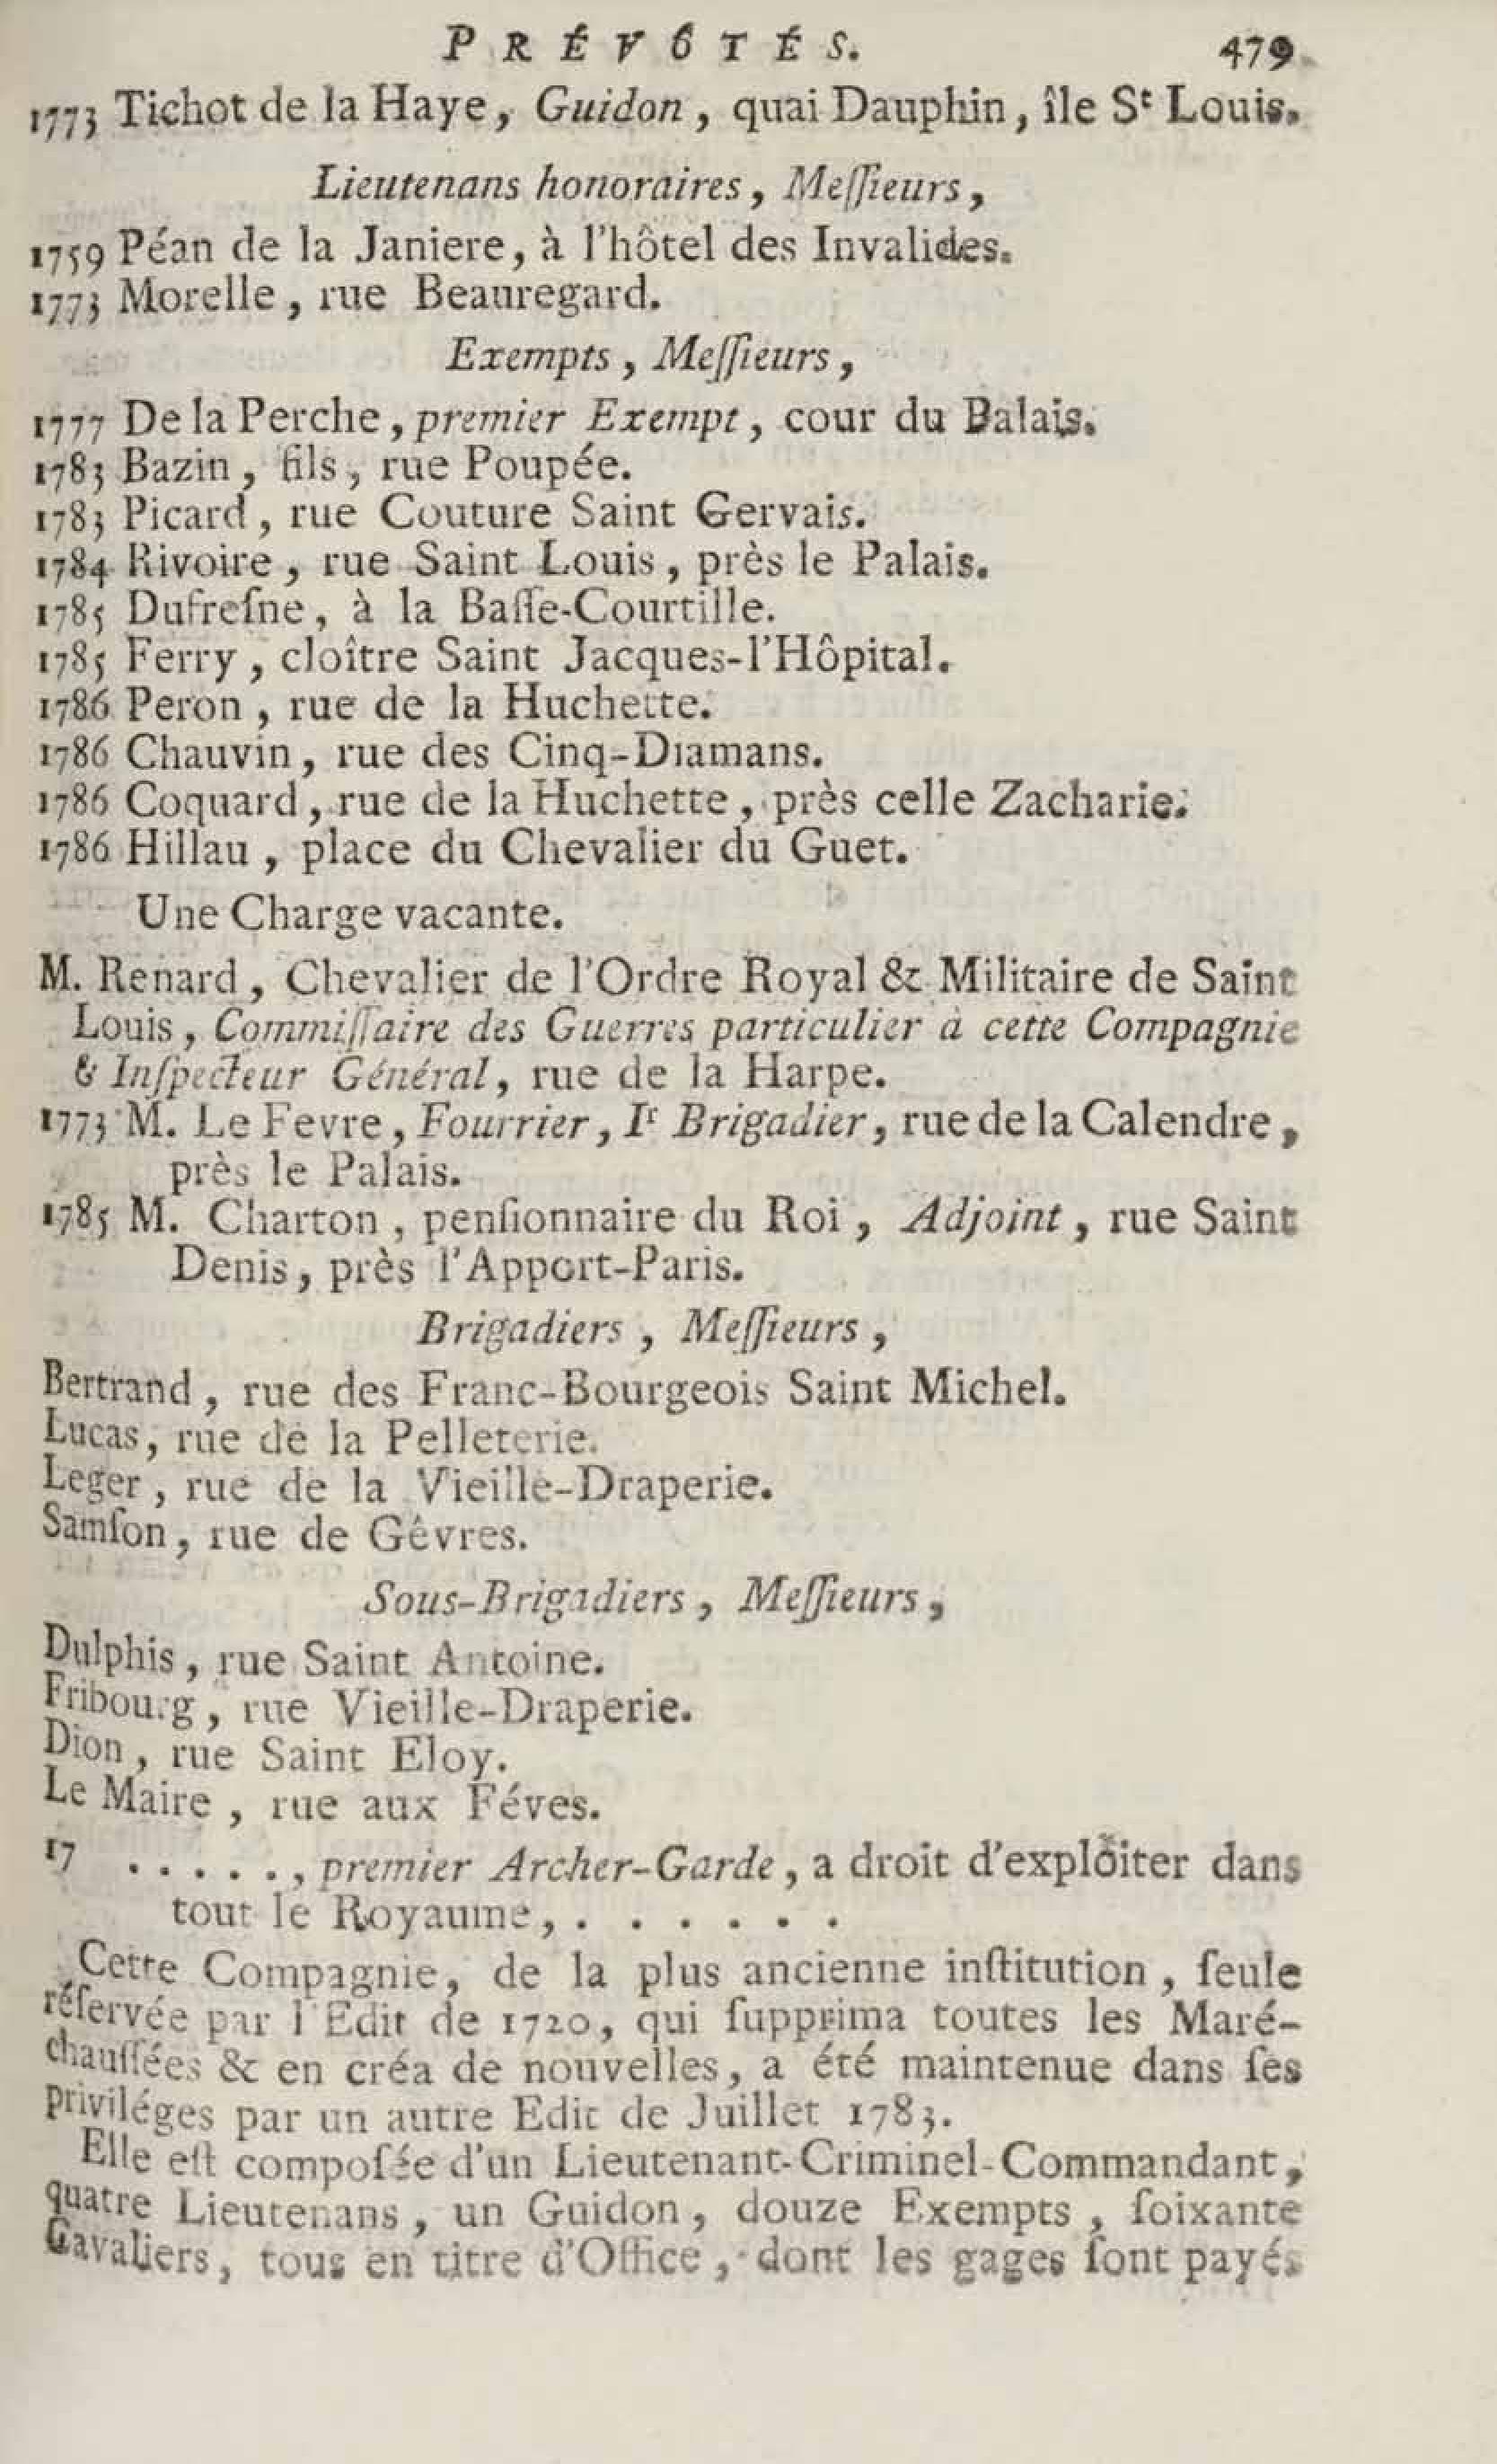 PRÉVÔTÉS. 479
1773 Tichot de la Haye, Guidon, quai Dauphin, île St Louis.
Lieutenans honoraires, Meſſieurs,
1759 Péan de la Janiere, à l'hôtel des Invalides.
1773 Morelle, rue Beauregard.
Exempts, Meſſieurs,
1777 De la Perche, premier Exempt, cour du Palais.
1783 Bazin, fils, rue Poupée.
1783 Picard, rue Couture Saint Gervais.
1784 Rivoire, rue Saint Louis, près le Palais.
1785 Dufreſne, à la Baſſe-Courtille.
1785 Ferry, cloître Saint Jacques-l'Hôpital.
1786 Peron, rue de la Huchette.
1786 Chauvin, rue des Cinq-Diamans.
1786 Coquard, rue de la Huchette, près celle Zacharie.
1786 Hillau, place du Chevalier du Guet.
Une Charge vacante.
M. Renard, Chevalier de l'Ordre Royal & Militaire de Saint
Louis, Commiſſaire des Guerres particulier à cette Compagnie
& Inſpecteur Général, rue de la Harpe.
1773 M. Le Fevre, Fourrier, Ir Brigadier, rue de la Calendre,
près le Palais.
1785 M. Charton, penſionnaire du Roi, Adjoint, rue Saint
Denis, près l'Apport-Paris.
Brigadiers, Meſſieurs,
Bertrand, rue des Franc-Bourgeois Saint Michel.
Lucas, rue de la Pelleterie.
Leger, rue de la Vieille-Draperie.
Samſon, rue de Gêvres.
Sous-Brigadiers, Meſſieurs,
Dulphis, rue Saint Antoine.
Fribourg, rue Vieille-Draperie.
Dion, rue Saint Eloy.
Le Maire, rue aux Féves.
17 . . . . . ., premier Archer-Garde, a droit d'exploiter dans
tout le Royaume, . . . . . .
Cette Compagnie, de la plus ancienne inſtitution, ſeule
réſervée par l'Edit de 1720, qui ſupprima toutes les Maré-
chauſſées & en créa de nouvelles, a été maintenue dans ſes
priviléges par un autre Edit de Juillet 1783.
Elle eſt compoſée d'un Lieutenant-Criminel-Commandant,
quatre Lieutenans, un Guidon, douze Exempts, ſoixante
Cavaliers, tous en titre d'Office, dont les gages ſont payés